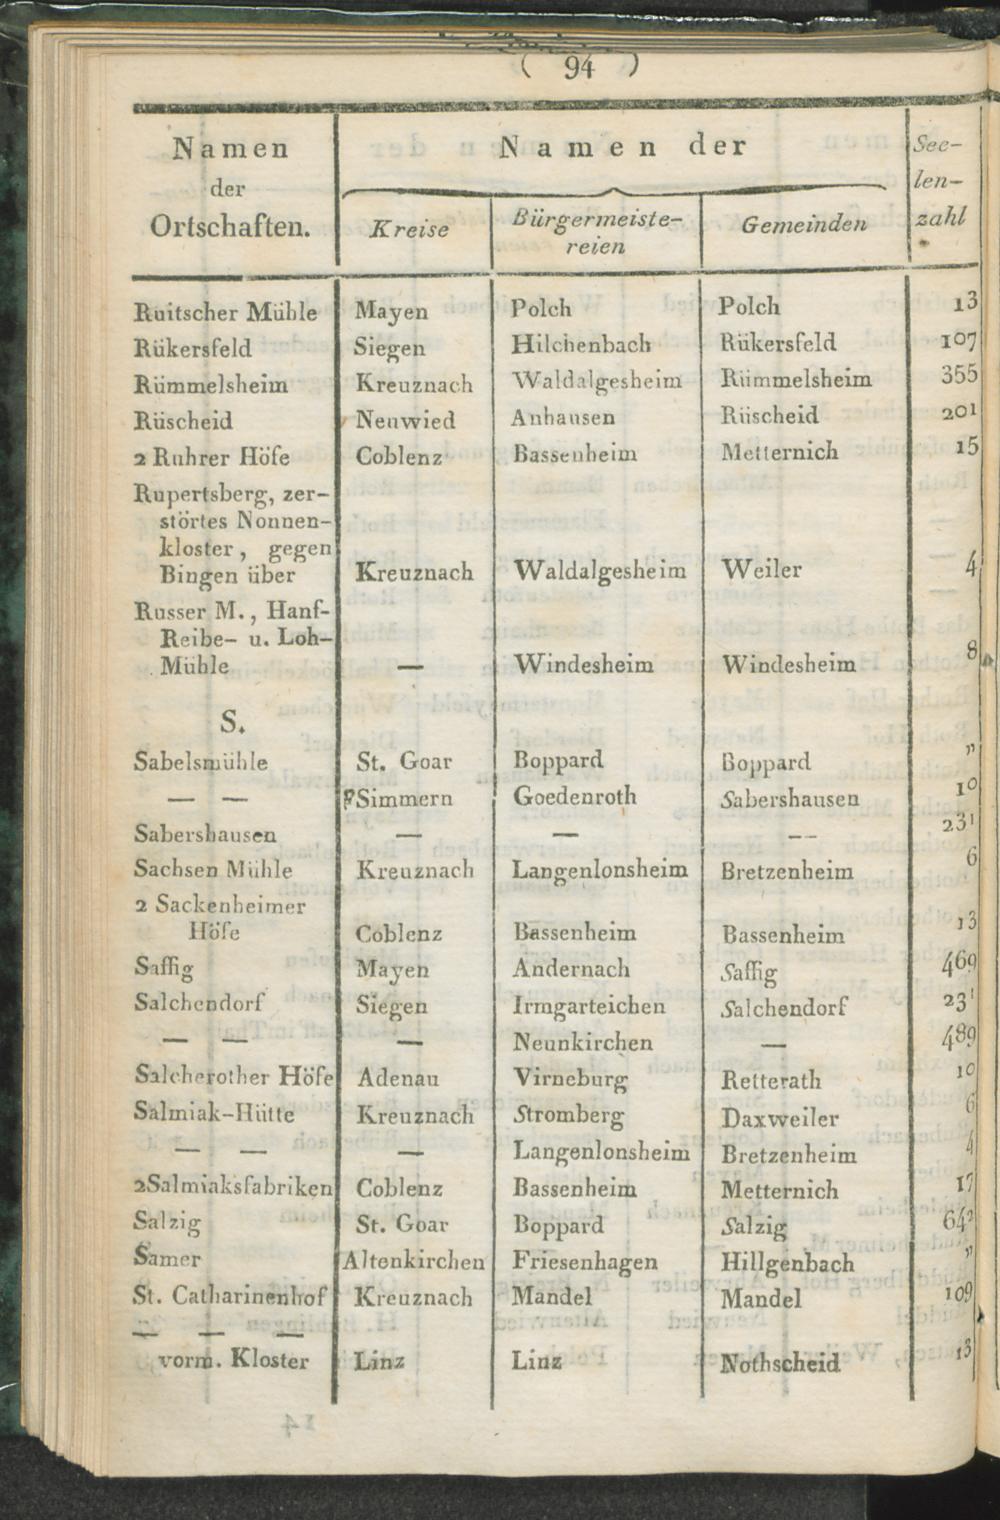 ( 94 )
Namen der Ortschaften. | Namen der | Seelenzahl
Kreise | Bürgermeistereien | Gemeinden
Ruitscher Mühle Mayen Polch Polch 13
Rükersfeld Siegen Hilchenbach Rükersfeld 107
Rümmelsheim Kreuznach Waldalgesheim Rümmelsheim 355
Rüscheid Neuwied Anhausen Rüscheid 201
2 Ruhrer Höfe Coblenz Bassenheim Metternich 15
Rupertsberg, zer-
störtes Nonnen-
kloster, gegen
Bingen über Kreuznach Waldalgesheim Weiler 4
Russer M., Hanf-
Reibe- u. Loh-
Mühle — Windesheim Windesheim 8
S.
Sabelsmühle St. Goar Boppard Boppard „
— — Simmern Goedenroth Sabershausen 10
Sabershausen — — — — 231
Sachsen Mühle Kreuznach Langenlonsheim Bretzenheim 6
2 Sackenheimer
Höfe Coblenz Bassenheim Bassenheim 13
Saffig Mayen Andernach Saffig 469
Salchendorf Siegen Irmgarteichen Salchendorf 231
— — — Neunkirchen — 489
Salcherother Höfe Adenau Virneburg Retterath 10
Salmiak-Hütte Kreuznach Stromberg Daxweiler 6
— — — Langenlonsheim Bretzenheim 4
2 Salmiaksfabriken Coblenz Bassenheim Metternich 17
Salzig St. Goar Boppard Salzig
Samer Altenkirchen Friesenhagen Hillgenbach „
St. Catharinenhof Kreuznach Mandel Mandel 109
— — —
vorm. Kloster Linz Linz Nothscheid 13